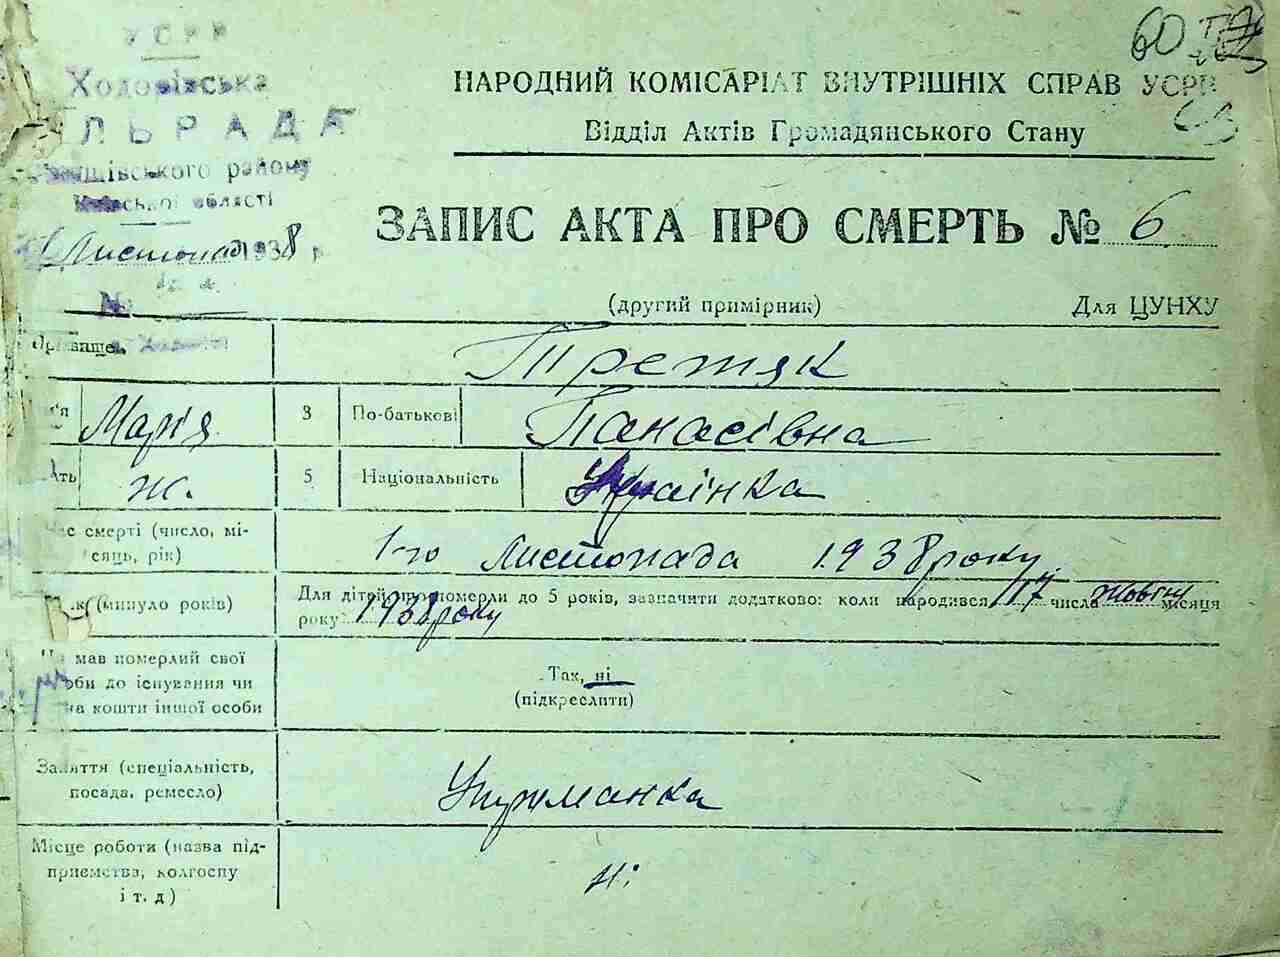 УСРР
Ходорівська
ЛЬРАДА
району
Київської області
Листопад 1938 р.
№
60
НАРОДНИЙ КОМІСАРІАТ ВНУТРІШНІХ СПРАВ УСРР
Відділ Актів Громадянського Стану
ЗАПИС АКТА ПРО СМЕРТЬ № 6
(другий примірник) Для ЦУНХУ
Прізвище Третяк
Марія 3 По-батькові Панасівна
ж. 5 Національність Українка
смерті (число, мі-
сяць, рік) 1-го Листопада 1938 року
(минуло років) Для дітей, що померли до 5 років, зазначити додатково: коли народився 17 числа жовтня місяця
року 1938 року
мав померлий свої
до існування чи
на кошти іншої особи
Так, ні
(підкреслити)
Заняття (спеціальність,
посада, ремесло) Утриманка
Місце роботи (назва під-
приємства, колгоспу
і т. д)
ні